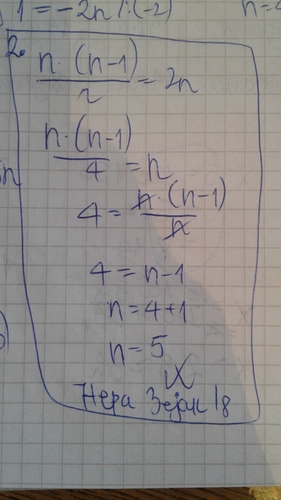 1 = -2n /·(-2) n=4
2.
n·(n-1)/2 = 2n
n·(n-1)/4 = n
4 = n·(n-1)/n
4 = n-1
n = 4+1
n = 5
Нера Зејак I8